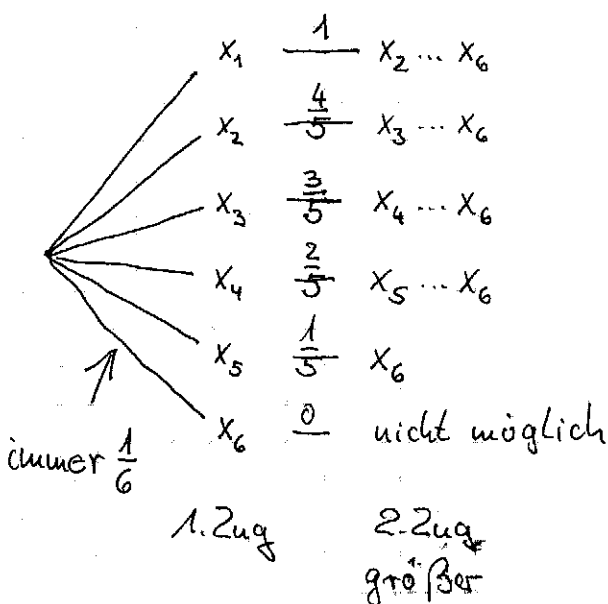 x₁ 1 x₂ ... x₆
x₂ 4/5 x₃ ... x₆
x₃ 3/5 x₄ ... x₆
x₄ 2/5 x₅ ... x₆
x₅ 1/5 x₆
x₆ 0 nicht möglich
immer 1/6
1. Zug 2. Zug
größer